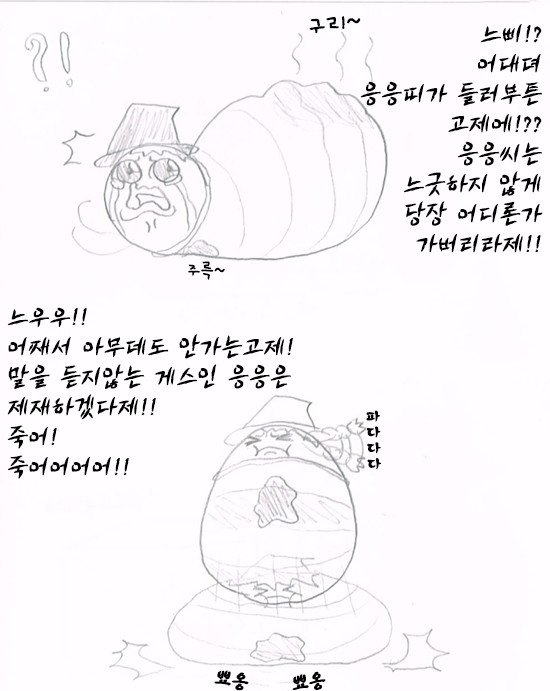 ?!
구리~
느삐!?
어대뎌
응응띠가 들러부튼
고제에!??
응응씨는
느긋하지 않게
당장 어디론가
가버리라제!!
주륵~
느우우!!
어째서 아무데도 안가는고제!
말을 듣지않는 게스인 응응은
제재하겠다제!!
죽어!
죽어어어어!!
파
다
다
다
뾰옹 뾰옹